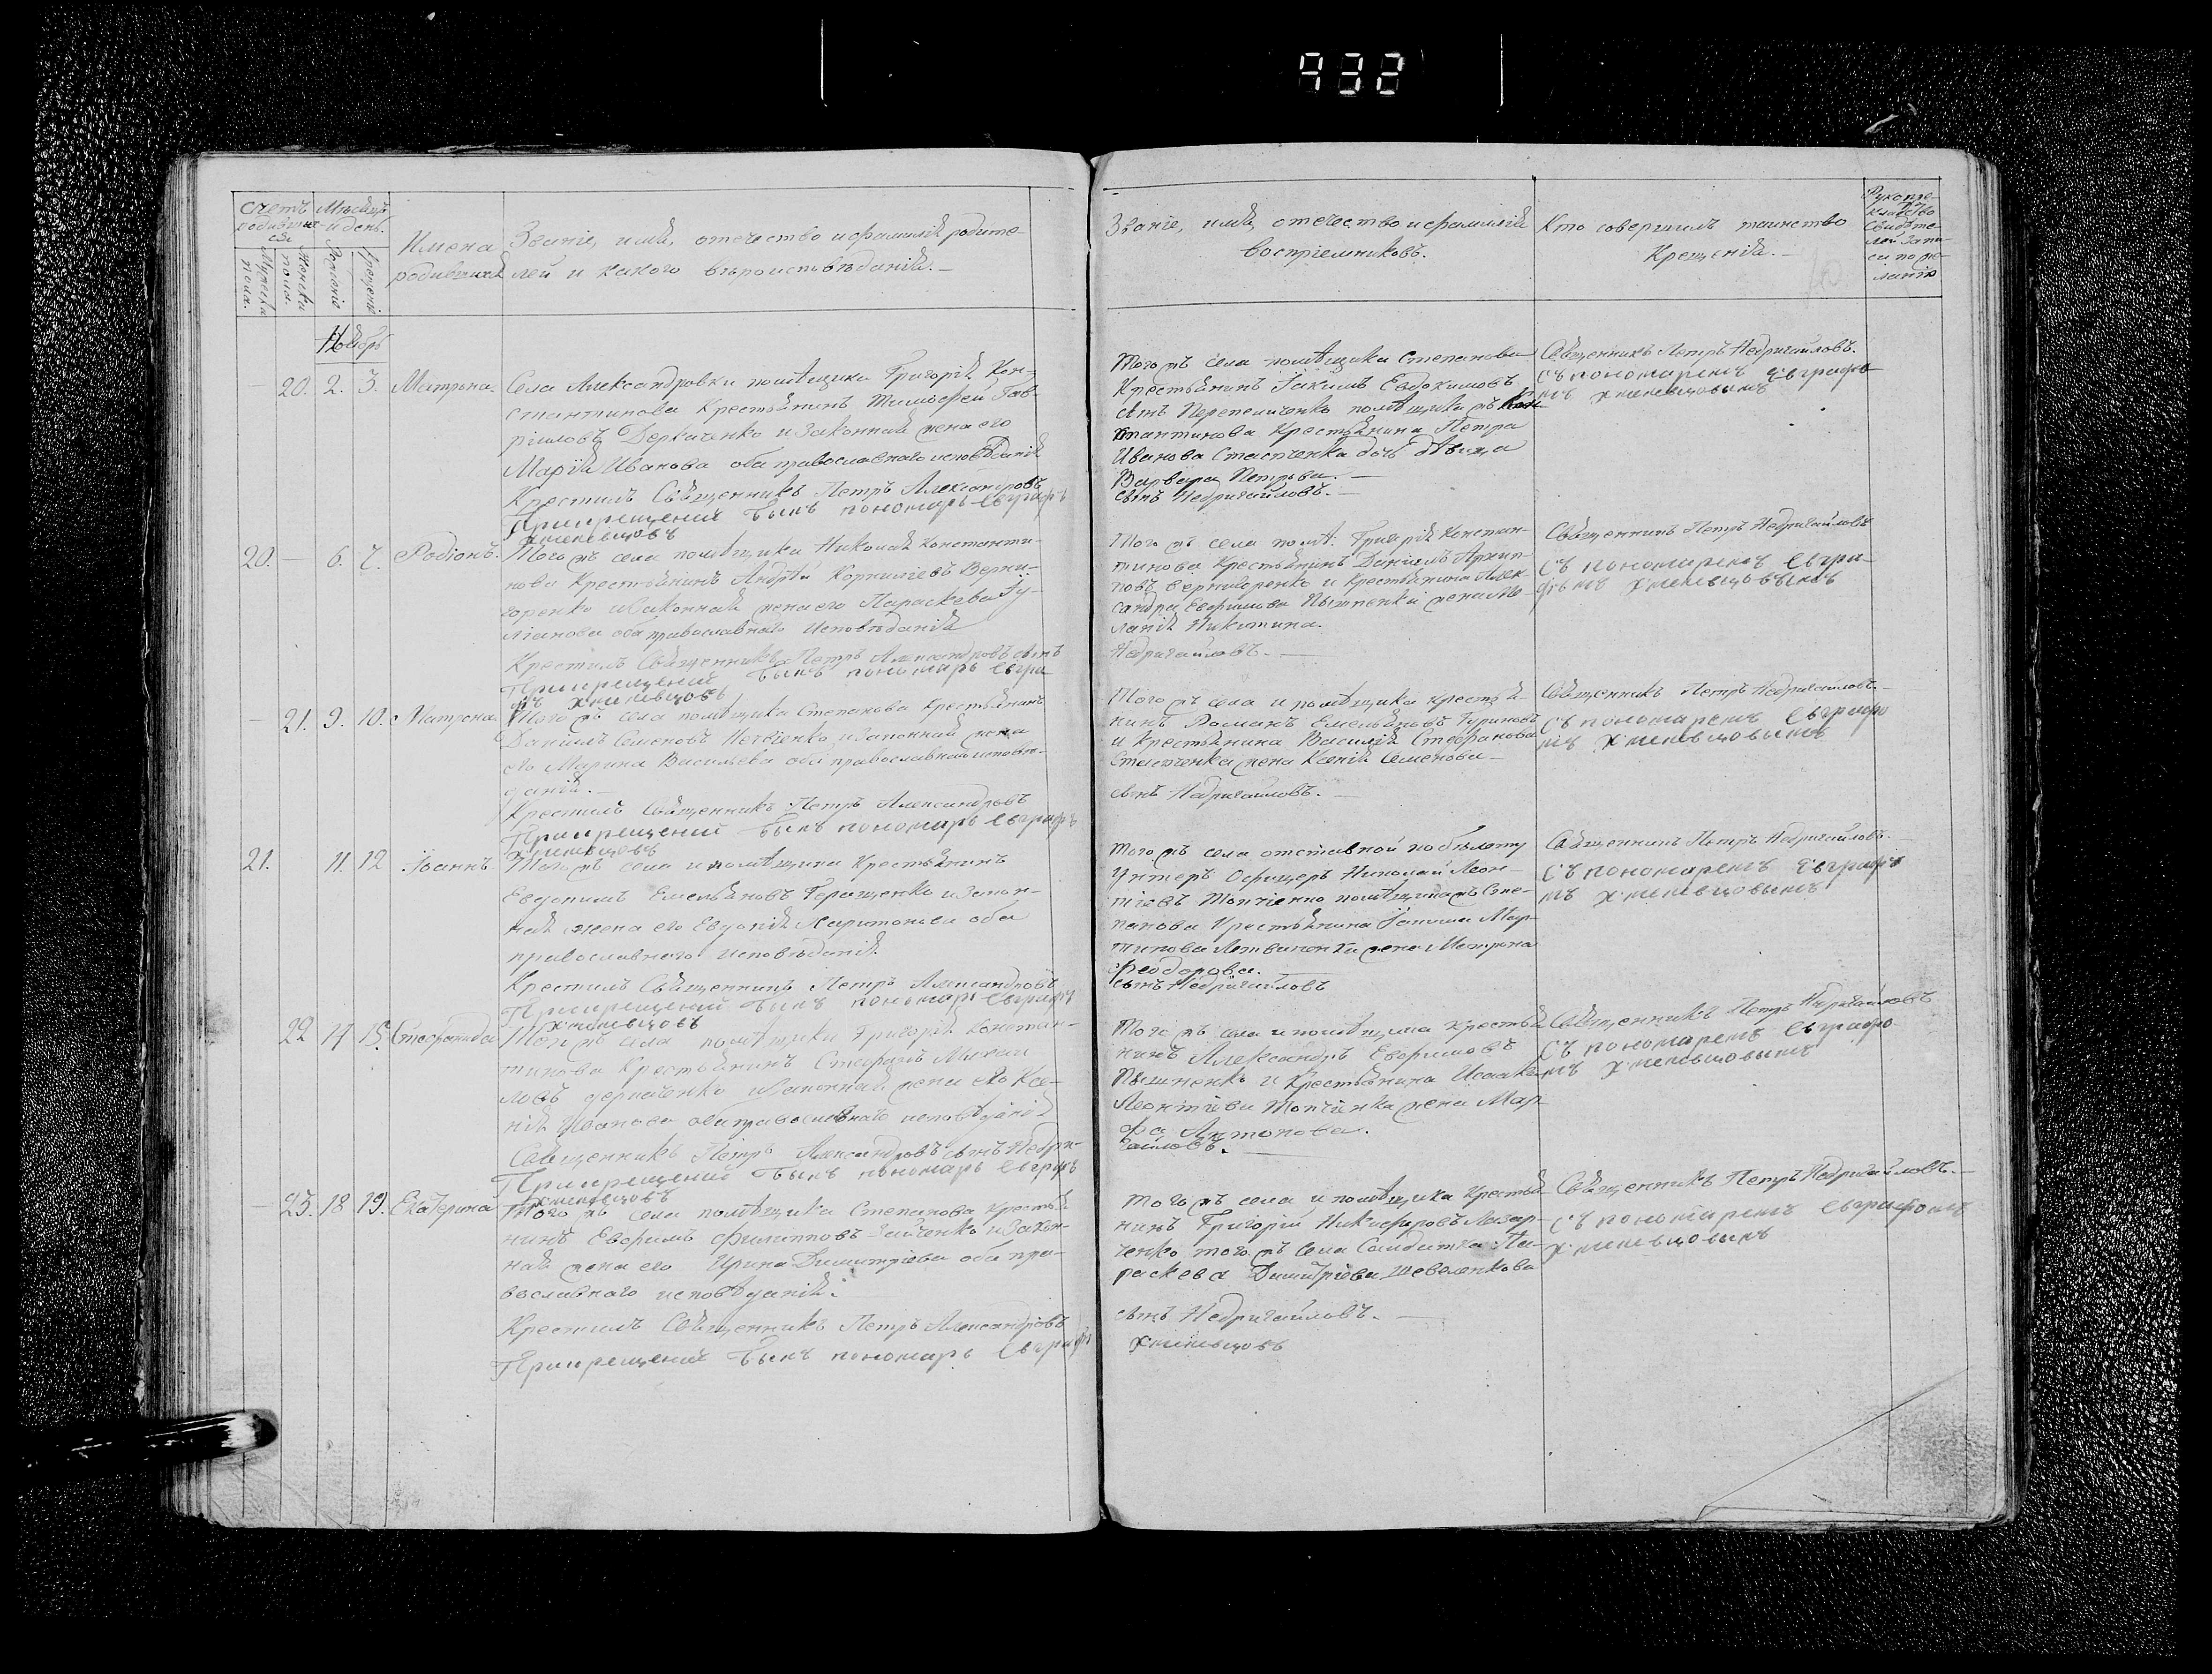 932
Счетъ родившихся
Мѣсяцъ и день.
Имена родившихся
Званіе, имя, отечество и фамилія родителей и какого вѣроисповѣданія.
Званіе, имя, отечество и фамилія воспріемниковъ.
Кто совершилъ таинство Крещенія.
Мужеска пола.
Женска пола.
Рожденіе
Крещеніе
Ноябрь
20. 2. 3. Матрона.
Села Александровки помѣщика Григорія Кон-
стантинова Крестьянинъ Тимофей Гав-
ріиловъ Деркаченко и Законная жена его
Марія Иванова оба православнаго исповѣданія
Крестилъ Священникъ Петръ Александровъ
При крещеніи былъ пономарь Евграфъ
Хмелевцовъ
Того жъ села помѣщика Степанова
Крестьянинъ Іакимъ Евдокимовъ
сынъ Перепеличенко помѣщика жъ Кон-
стантинова Крестьянина Петра
Иванова дочь дѣвица
Варвара Петрова.
сынъ Недригайловъ.
Священникъ Петръ Недригайловъ.
съ пономаремъ Евграфо-
мъ Хмелевцовымъ
20. — 6. 7. Родіонъ.
Того жъ села помѣщика Николая Константи-
нова Крестьянинъ Андрей Корниліевъ Верни-
горенко и Законная жена его Параскева Іу-
ліанова оба православнаго Исповѣданія
Крестилъ Священникъ Петръ Александровъ сынъ
При крещеніи былъ пономарь Евгра
фъ Хмелевцовъ
Того жъ села помѣ: Григорія Констан-
тинова Крестьянинъ Даніилъ Архип-
повъ Вернигоренко и Крестьянина Алек-
сандра Ефимова жена Ме-
ланія Никитина.
Недригайловъ.
Священникъ Петръ Недригайловъ
съ пономаремъ Евгра-
фомъ Хмелевцовымъ
— 21. 9. 10. Матрона.
Того жъ села помѣщика Степанова Крестьянинъ
Даніилъ Семеновъ и Законная жена
его Марина Васильева оба православнаго исповѣ-
данія.
Крестилъ Священникъ Петръ Александровъ
При крещеніи былъ пономарь Евграфъ
Хмелевцовъ
Того жъ села и помѣщика крестья-
нинъ Романъ Емельяновъ Гуриновъ
и Крестьянина Василія Стефанова
жена Ксенія Семенова
сынъ Недригайловъ.
Священникъ Петръ Недригайловъ.
съ пономаремъ Евграфо
мъ Хмелевцовымъ
21. 11. 12 Іоаннъ
Того жъ села и помѣщика Крестьянинъ
Евдокимъ Емельяновъ Геращенко и Закон-
ная жена его Евдокія Харитонова оба
православнаго исповѣданія.
Крестилъ Священникъ Петръ Александровъ
При крещеніи былъ пономарь Евграфъ
Хмелевцовъ
Того жъ села отставной по билету
Унтеръ Офицеръ Николай Леон-
тіевъ Топчіенко помѣщика жъ Сте-
панова Крестьянина Іакима Мар-
тинова жена Матрона
Феодорова.
сынъ Недригайловъ
Священникъ Петръ Недригайловъ.
съ пономаремъ Евграфо
мъ Хмелевцовымъ
22 14 15. Стефанида
Того жъ села помѣщика Григорія Констан-
тинова Крестьянинъ Стефанъ Михаи
ловъ Деркаченко и Законная жена его Ксе-
нія Иванова оба православнаго исповѣданія
Священникъ Петръ Александровъ сынъ Недри-
При крещеніи былъ пономарь Евграфъ
Хмелевцовъ
Того жъ села и помѣщика крестья
нинъ Александръ Ефимовъ
и Крестьянина Исаака
Леонтіева Топчіенка жена Мар-
фа Антонова.
гайловъ.
Священникъ Петръ Недригайловъ
съ пономаремъ Евграфо
мъ Хмелевцовымъ
— 23. 18 19. Екатерина
Того жъ села помѣщика Степанова крестья
нинъ Ефимъ Филипповъ и Закон-
ная жена его Ирина Димитріева оба пра-
вославнаго исповѣданія.
Крестилъ Священникъ Петръ Александровъ
При крещеніи былъ пономарь Евграфъ
Того жъ села и помѣщика Крестья
нинъ Григорій Никифоровъ Лазар-
ченко того жъ села Солдатка Па-
раскева Димитріева
сынъ Недригайловъ.
Хмелевцовъ
Священникъ Петръ Недригайловъ.
съ пономаремъ Евграфомъ
Хмелевцовымъ